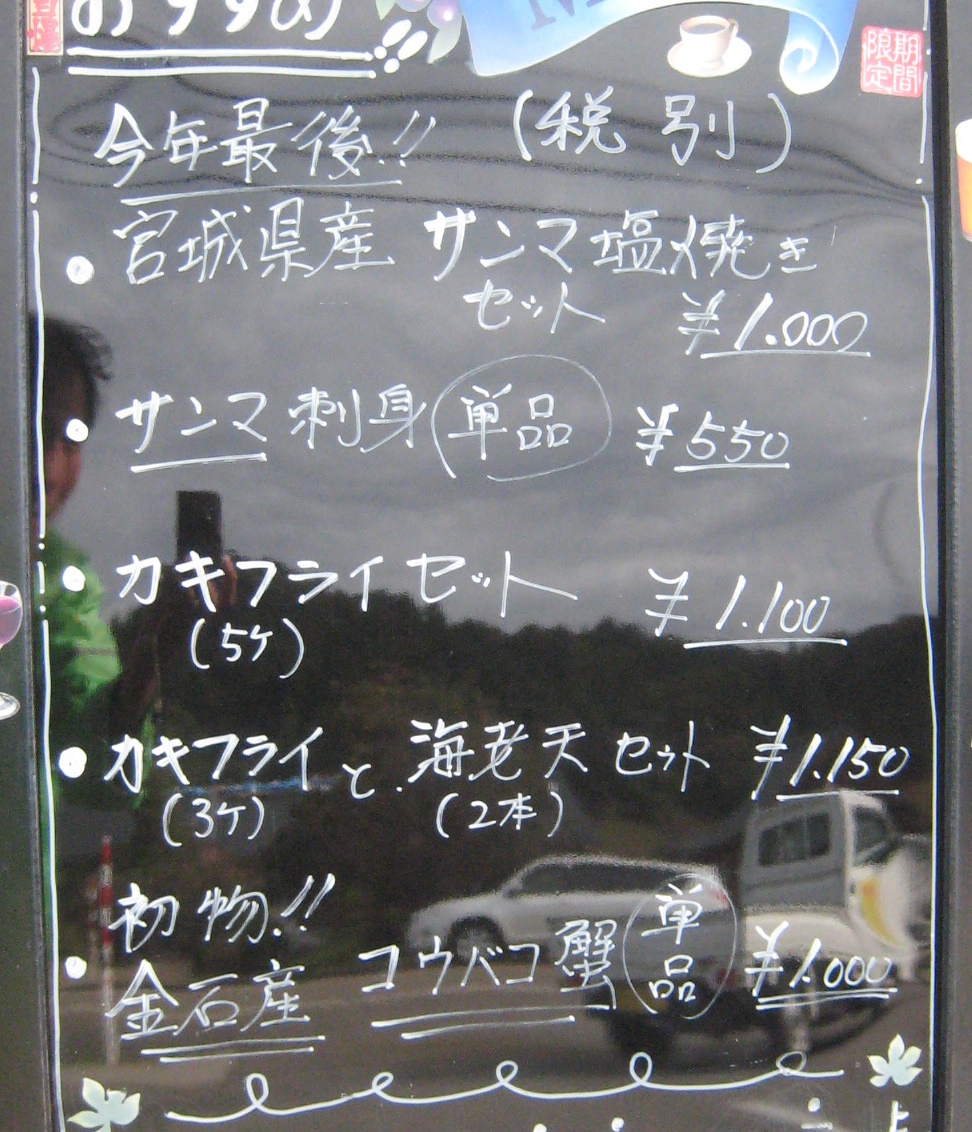 おすすめ!!
期間限定
今年最後!! (税別)
宮城県産 サンマ塩焼き
セット ¥1.000
サンマ刺身 単品 ¥550
カキフライセット ¥1.100
(5ケ)
カキフライと.海老天セット ¥1.150
(3ケ) (2本)
初物!!
金石産 コウバコ蟹 単品 ¥1.000